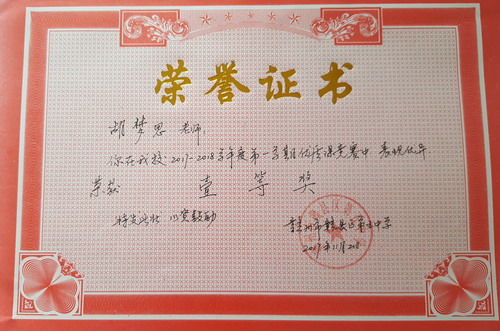 荣誉证书
胡梦思 老师
你在我校2017-2018学年度第一学期优质课竞赛中 表现优异
荣获 壹等奖
特发此状 以资鼓励
赣州市赣县区 中学
2017年11月